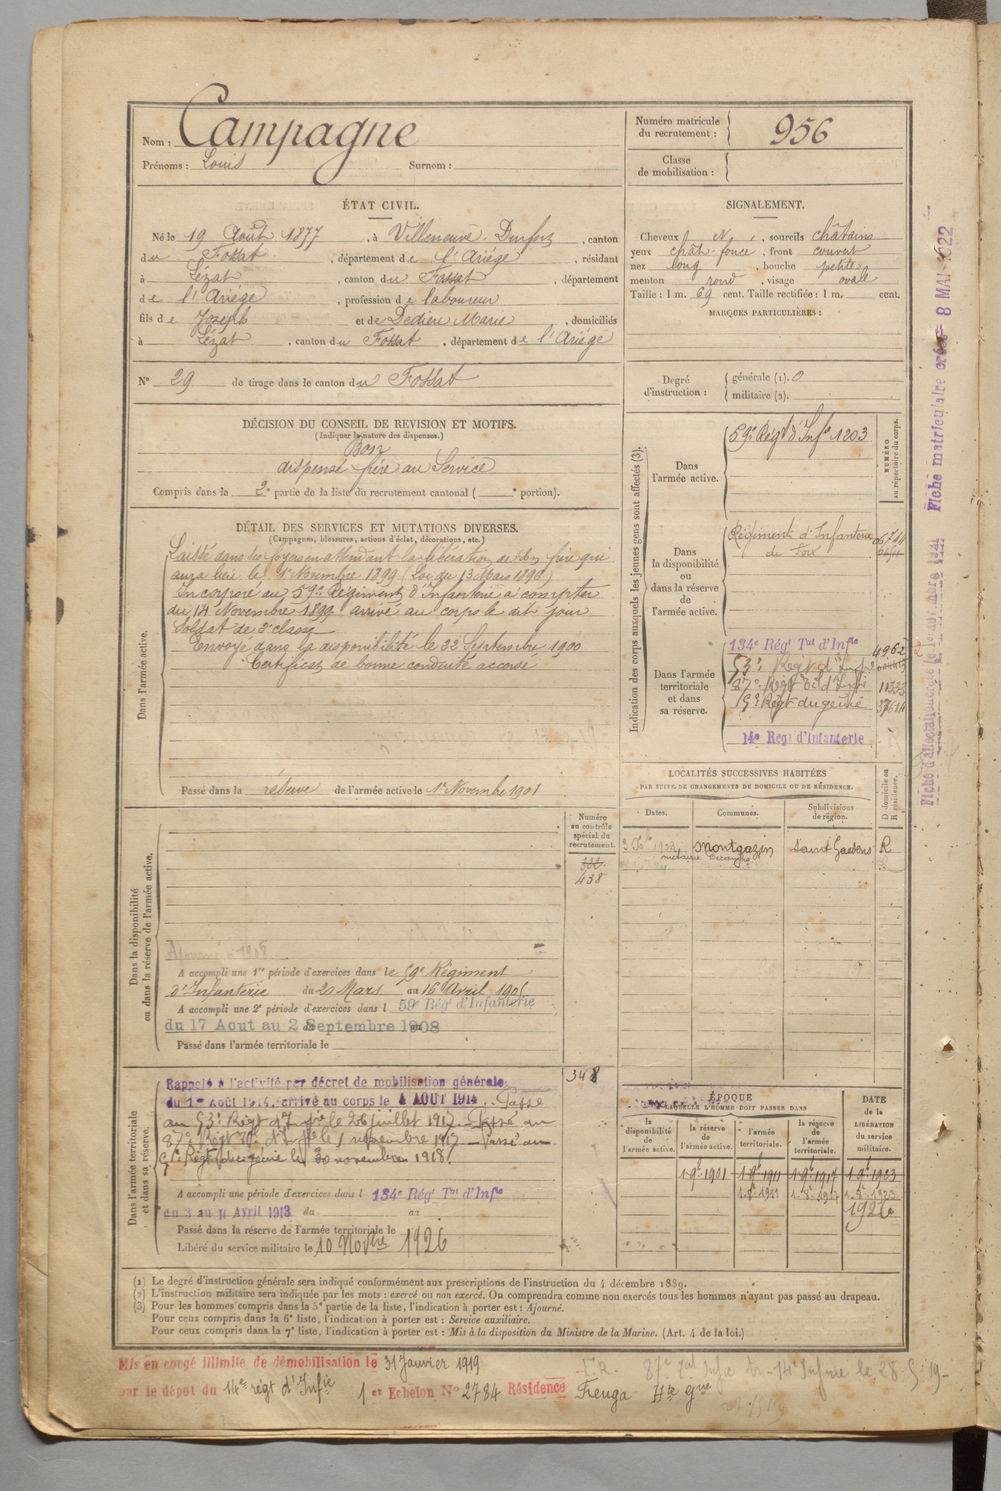 Nom : Campagne
Prénoms : Louis Surnom :
Numéro matricule du recrutement : 956
Classe de mobilisation :
ÉTAT CIVIL.
Né le 19 Août 1877, à Villeneuve Durfort, canton
du Fossat, département de l'Ariège, résidant
à Lézat, canton du Fossat, département
de l'Ariége, profession de laboureur
fils de Joseph et de Dedieu Marie, domiciliés
à Lézat, canton du Fossat, département de l'Ariége
N° 29 de tirage dans le canton du Fossat
SIGNALEMENT.
Cheveux N, sourcils châtains
yeux chât. foncé, front couvert
nez long, bouche petite
menton rond, visage ovale
Taille : 1 m. 69 cent. Taille rectifiée : 1 m. cent.
MARQUES PARTICULIÈRES :
Degré d'instruction : générale (1). 0
militaire (2).
DÉCISION DU CONSEIL DE REVISION ET MOTIFS.
(Indiquer la nature des dispenses.)
Bon
dispensé frère au Service
Compris dans la 2e partie de la liste du recrutement cantonal ( e portion).
DÉTAIL DES SERVICES ET MUTATIONS DIVERSES.
(Campagnes, blessures, actions d'éclat, décorations, etc.)
Dans l'armée active.
Laissé dans ses foyers en attendant la libération de son frère qui
aura lieu le 1er Novembre 1899 (Loi du 13 Mars 1896)
Incorporé au 59e Régiment d'Infanterie à compter
du 14 Novembre 1899 arrivé au corps le dit jour
Soldat de 2e classe
Envoyé dans la disponibilité le 22 Septembre 1900
Certificat de bonne conduite accordé
Passé dans la réserve de l'armée active le 1er Novembre 1901
Indication des corps auxquels les jeunes gens sont affectés (3).
NUMÉRO au répertoire du corps.
Dans l'armée active.
59e Régt d'Infie 1203
Dans la disponibilité ou dans la réserve de l'armée active.
Régiment d'Infanterie
de Foix
Dans l'armée territoriale et dans sa réserve.
134e Régt Tal d'Infie 4962
53e Régt d'Infie
87e Régt d'Infie 11333
1er Régt du génie
14e Régt d'Infanterie
LOCALITÉS SUCCESSIVES HABITÉES
PAR SUITE DE CHANGEMENTS DE DOMICILE OU DE RÉSIDENCE.
Dates. Communes. Subdivisions de région. D domicile ou R résidence.
Montgazin Saint Gaudens R
Dans la disponibilité ou dans la réserve de l'armée active.
Numéro au contrôle spécial du recrutement.
438
A accompli une 1re période d'exercices dans le 59e Régiment
d'Infanterie du 20 Mars au 16 Avril
A accompli une 2e période d'exercices dans l 59e Régt d'Infanterie
du 17 Aout au 2 Septembre 1908
Passé dans l'armée territoriale le
Dans l'armée territoriale et dans sa réserve.
348
Rappelé à l'activité par décret de mobilisation générale
du 1er Août 1914, arrivé au corps le 4 AOUT 1914. Passé
au 53e Régt d'Infie le 26 juillet 1917. Passé au
87e Régt d'Infie le 1 novembre 1917. Passé au
Régt du génie le 30 novembre 1918.
A accompli une période d'exercices dans l 134e Régt Tal d'Infie
du 3 au 11 Avril 1913 du au
Passé dans la réserve de l'armée territoriale le
Libéré du service militaire le 10 Novbre 1926
ÉPOQUE
À LAQUELLE L'HOMME DOIT PASSER DANS
la disponibilité de l'armée active. la réserve de l'armée active. l'armée territoriale. la réserve de l'armée territoriale.
DATE de la LIBÉRATION du service militaire.
1 9bre 1901 1 9bre 1911 1 9bre 1917 1 9bre 1923
1926
(1) Le degré d'instruction générale sera indiqué conformément aux prescriptions de l'instruction du 4 décembre 1889.
(2) L'instruction militaire sera indiquée par les mots : exercé ou non exercé. On comprendra comme non exercés tous les hommes n'ayant pas passé au drapeau.
(3) Pour les hommes compris dans la 5e partie de la liste, l'indication à porter est : Ajourné.
Pour ceux compris dans la 6e liste, l'indication à porter est : Service auxiliaire.
Pour ceux compris dans la 7e liste, l'indication à porter est : Mis à la disposition du Ministre de la Marine. (Art. 4 de la loi.)
Mis en congé illimité de démobilisation le 31 Janvier 1919
par le dépôt du 14e régt d'Infie 1er Echelon N° 2784 Résidence Freuga Hte Gne
Fiche matriculaire créée 8 MAI 1922